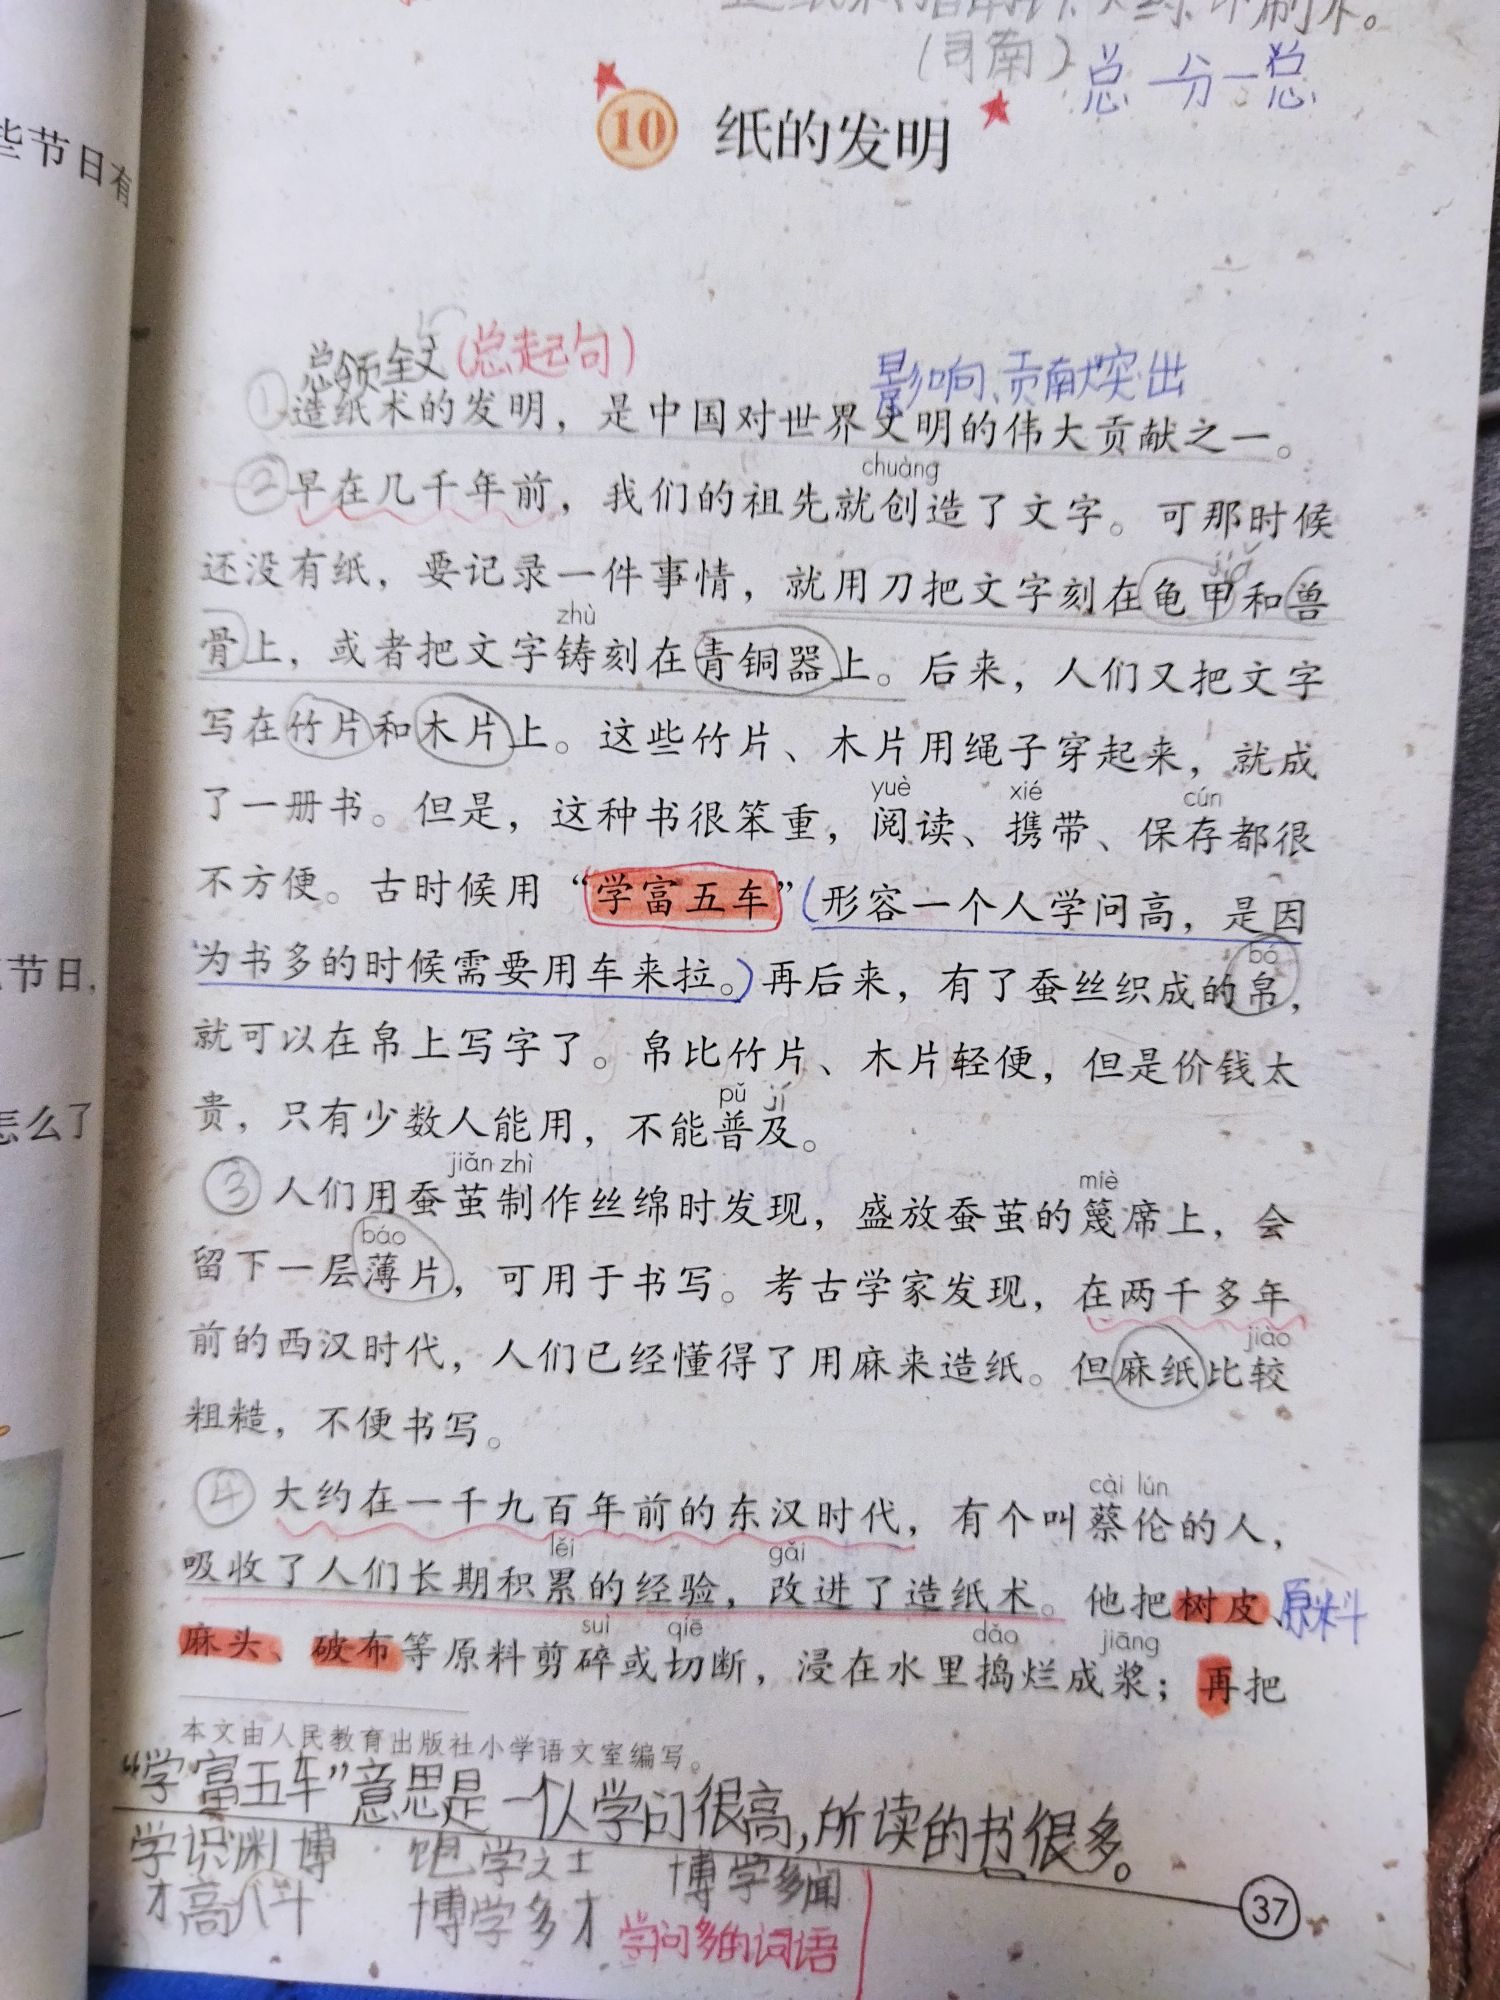 印刷术。
(司南)
总—分—总
10 纸的发明
总领全文(总起句)
影响、贡献突出
①造纸术的发明，是中国对世界文明的伟大贡献之一。
chuàng
②早在几千年前，我们的祖先就创造了文字。可那时候
jiǎ
还没有纸，要记录一件事情，就用刀把文字刻在龟甲和兽
zhù
骨上，或者把文字铸刻在青铜器上。后来，人们又把文字
写在竹片和木片上。这些竹片、木片用绳子穿起来，就成
yuè xié cún
了一册书。但是，这种书很笨重，阅读、携带、保存都很
不方便。古时候用“学富五车”形容一个人学问高，是因
bó
为书多的时候需要用车来拉。再后来，有了蚕丝织成的帛，
就可以在帛上写字了。帛比竹片、木片轻便，但是价钱太
pǔ jí
贵，只有少数人能用，不能普及。
jiǎn zhì miè
③人们用蚕茧制作丝绵时发现，盛放蚕茧的篾席上，会
báo
留下一层薄片，可用于书写。考古学家发现，在两千多年
jiào
前的西汉时代，人们已经懂得了用麻来造纸。但麻纸比较
粗糙，不便书写。
cài lún
④大约在一千九百年前的东汉时代，有个叫蔡伦的人，
lěi gǎi
吸收了人们长期积累的经验，改进了造纸术。他把树皮、原料
suì qiē dǎo jiāng
麻头、破布等原料剪碎或切断，浸在水里捣烂成浆；再把
本文由人民教育出版社小学语文室编写。
“学富五车”意思是一个人学问很高，所读的书很多。
学识渊博 饱学之士 博学多闻
才高八斗 博学多才 学问多的词语
37
些节日有
节日，
怎么了